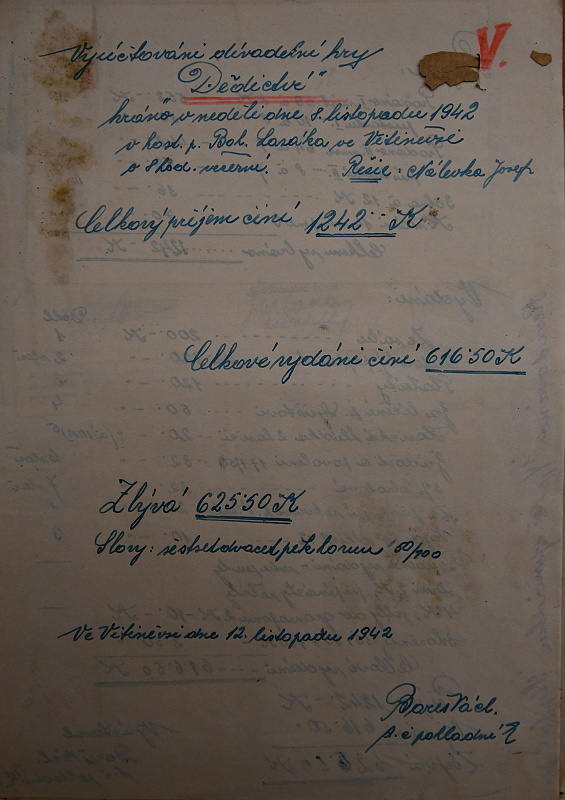 V.
Vyúčtování divadelní hry
"Dědictví"
hráno v neděli dne 8. listopadu 1942
v host. p. Boh. Lazáka ve Vitiněvsi
o 8 hod. večerní. Režie: Nálevka Josef
Celkový příjem činí 1242 K
Celkové vydání činí 616·50 K
Zbývá 625·50 K
Slovy: šestsetdvacetpět korun 50/100
Ve Vitiněvsi dne 12. listopadu 1942
Bareš Václ.
t. č. pokladní